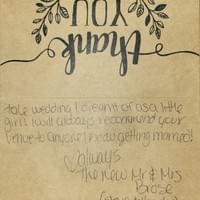 thank
YOU
tale wedding I dreamt of as a little
girl! I will always recommend your
venue to anyone I know getting married!
always
The new Mr & Mrs
Brose